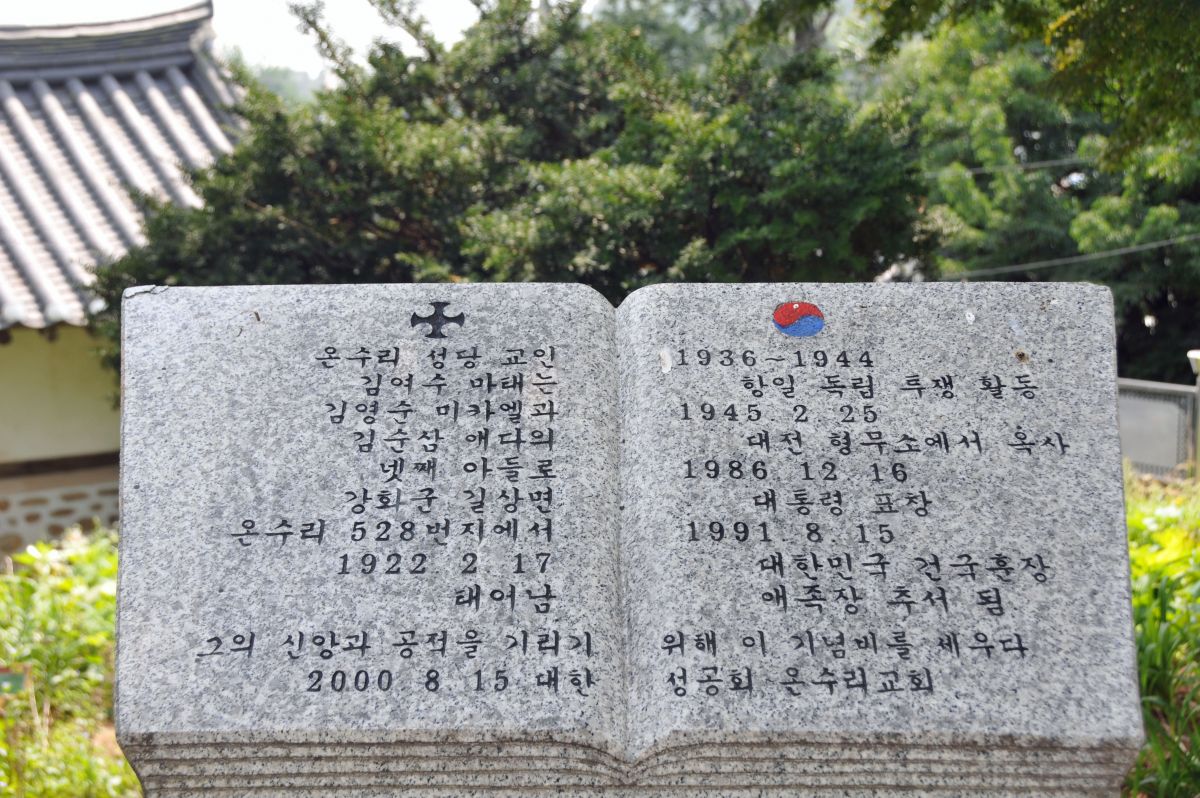 온수리 성당 교인
김여수 마태는
김영순 미카엘과
김순삼 애다의
넷째 아들로
강화군 길상면
온수리 528번지에서
1922 2 17
태어남
1936~1944
항일 독립 투쟁 활동
1945 2 25
대전 형무소에서 옥사
1986 12 16
대통령 표창
1991 8 15
대한민국 건국훈장
애족장 추서 됨
그의 신앙과 공적을 기리기 위해 이 기념비를 세우다
2000 8 15 대한 성공회 온수리교회